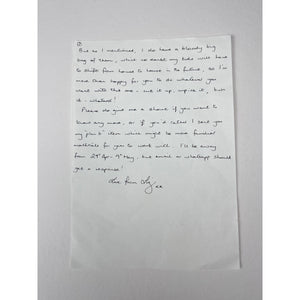 ②
But as I mentioned, I do have a bloody big
bag of them, which no doubt my kids will have
to shift from house to house in the future, so I'm
more than happy for you to do whatever you
want with that one - cut it up, unpick it, bin
it - whatever!
Please do give me a shout if you want to
know any more, or if you'd rather I sent you
my 'plan b' item which might be more practical
materials for you to work with. I'll be away
from 29th Apr - 9th May, but email or whatsapp should
get a response!
Love from xx